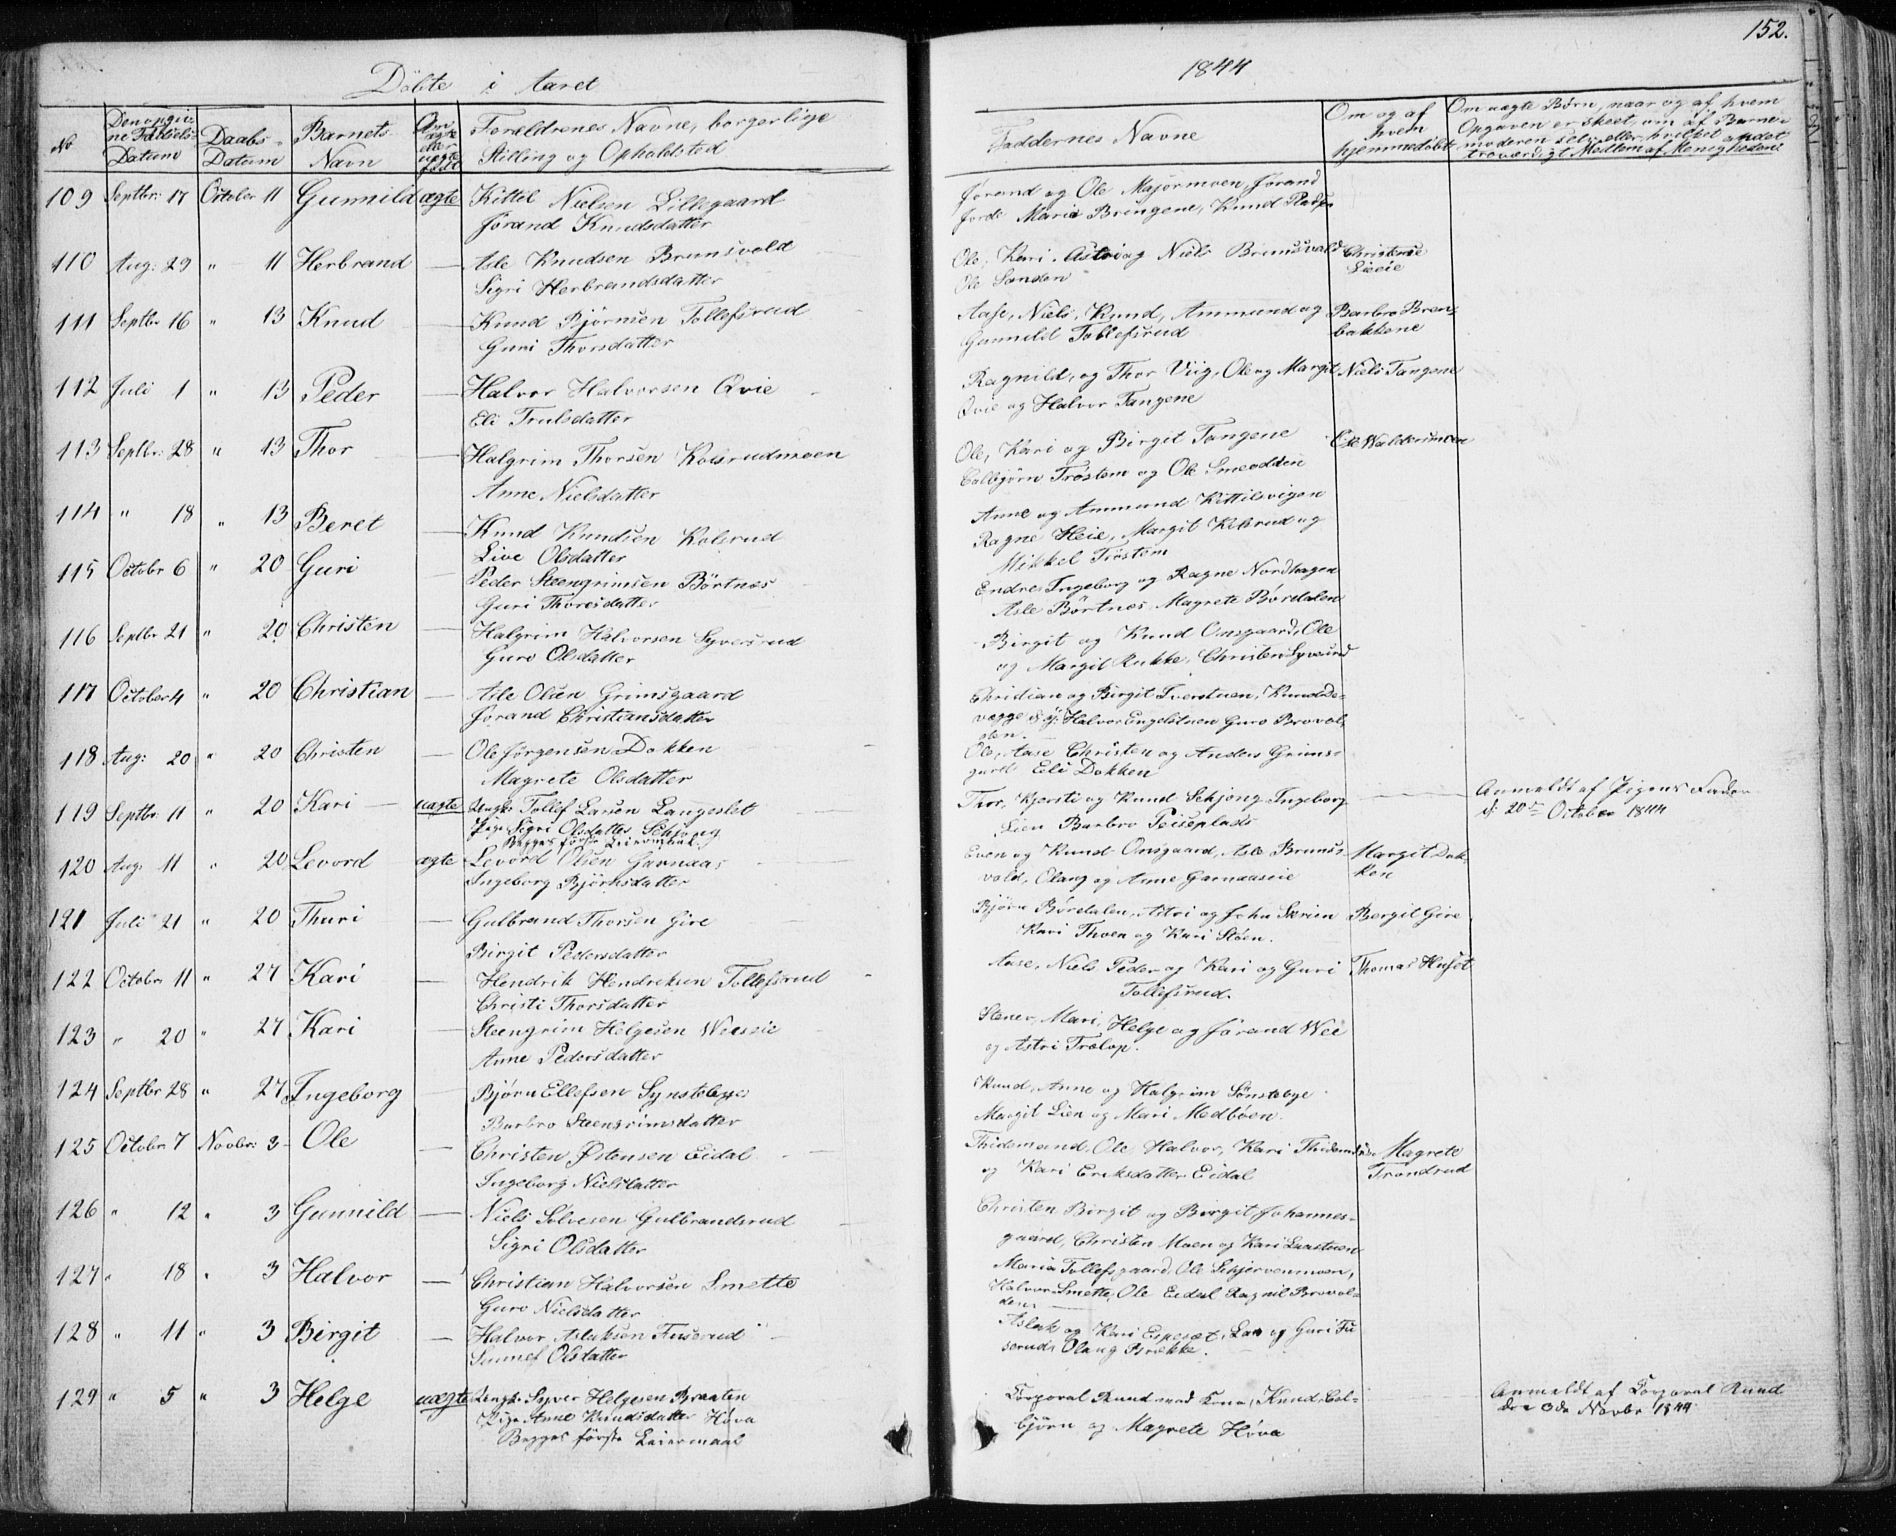 152.
Döbte i Aaret
1844
No
Daabs-
Datum
Barnets
Navn
Foraldrenes Navne, borgerlige
Stilling og Opholdsted
Faddernes Navne
Om og af
hvem
hjemmedöbt
Om uægte Børn, naar og af hvem
Opgaven er skeet, om af Barne-
109 Septbr: 17 October 11 Gunnild ægte Kittil Nielsen Lillegaard
Jørand Knudsdatter
Jørand og Ole Majormoen, Jørand
110 Aug: 29 " 11 Herbrand — Asle Knudsen Brunsvold
Sigri Herbrandsdatter
Ole, Kari, Astri og Niels Brunsvold
Ole Sanden
111 Septbr 16 " 13 Knud — Knud Bjørnsen Tollefsrud
Guri Thorsdatter
Aase, Niels, Knud, Ammund og
Gunnild Tollefsrud
Barbro Bren-
bakkene
112 Juli 1 " 13 Peder — Halvor Halvorsen Qvie
Eli Trulsdatter
Ragnild, og Thor Viig, Ole og Margit
Qvie og Halvor Tangene
Niels Tangene
113 Septbr: 28 " 13 Thor — Halgrim Thorsen Kolsrudmoen
Anne Nielsdatter
Ole, Kari og Birgit Tangene
Colbjörn Tröstem og Ole Smeodden
114 " 18 " 13 Beret — Knud Knudsen Kolsrud
Live Olsdatter
Anne og Ammund Kittilsvigen
Ragne Heie, Margit Kolsrud og
Mikkel Tröstem
115 Octobr 6 " 20 Guri — Peder Steengrimsen Börtnes
Guri Thoresdatter
Endre, Ingeborg og Ragne Nordhagen
Asle Börtnes Magrete Bördalen
116 Septbr 21 " 20 Christen — Halgrim Halvorsen Syversrud
Guro Olsdatter
Birgit og Knud Omsgaard, Ole
og Margit Rukke, Christen Syversrud
117 October 4 " 20 Christian — Asle Olsen Grimsgaard
Jørand Christiansdatter
Christian og Birgit Tverstuen,
Halvor Engelstuen Guro Brovol-
den.
118 Aug: 20 " 20 Christen — Ole Jørgensen Dokken
Magrete Olsdatter
Ole, Aase Christen og Anders Grims-
gard Eli Dokken
119 Septbr 11 " 20 Kari — uægte Ungk. Tollef Larsen Langeslet
Pige Sigri Olsdatter Schjong
Begges förste Leiermaal
Thor, Kjersti og Knud Schjong, Ingeborg
Lien Barbro Peiseplads
Anmeldt af Pigens Fader
d: 20de October 1844
120 Aug: 11 " 20 Levord ægte Levord Olsen Garnaas
Ingeborg Björnsdatter
Even og Knud Omsgaard, Asle Bruns-
vold, Olaug og Anne Garnaaseie
Margit Dok-
ken
121 Juli 21 " 20 Thuri — Gulbrand Thorsen Gire
Birgit Pedersdatter
Bjørn Bördalen, Astri og John
Kari Thoen og Kari Stöen.
Bergit Gire
122 Octobr 11 " 27 Kari — Hendrik Hendriksen Tollefsrud
Christi Thorsdatter
Aase, Niels Peder og Kari og Guri
Tollefsrud.
Thomas Huset
123 " 20 " 27 Kari — Steengrim Helgesen
Anne Pedersdatter
Stener, Mari, Helge og Jörand Wei
og Astri
124 Septbr 28 " 27 Ingeborg — Bjørn Ellefsen Synstebye
Barbro Steengrimsdatter
Knud, Anne og Halgrim Sönstebye
Margit Lien og Mari Medböen.
125 Octobr 7 Novbr: 3 Ole — Christen Østensen Eidal
Ingeborg Nielsdatter
Thidemand, Ole Halvor, Kari
og Kari Eriksdatter Eidal
Magrete
Trondrud
126 " 12 " 3 Gunnild — Niels Sølvesen Gulbrandsrud
Sigri Olsdatter
Christen Birgit og Birgit Johannes-
gaard, Christen Moen og Kari
127 " 18 " 3 Halvor — Christian Halvorsen Smette
Guro Nielsdatter
Maria Tollefsgaard, Ole Schjervenmoen,
Halvor Smette, Ole Eidal Ragnil Brovol-
den
128 " 11 " 3 Birgit — Halvor Aslaksen Fuserud
Sunnef Olsdatter
Aslak og Kari Espeset, Lars og Guri Fu
serud, Olaug Brække.
129 " 5 " 3 Helge uægte Ungk. Syver Helgesen Braaten
Pige Anne Knudsdatter Hova
Begges förste Leiermaal
Corporal Ruud med Kone, Knud, Col-
björn og Magrete Hova
Anmeldt af Corporal Ruud
den 3de Novbr 1844